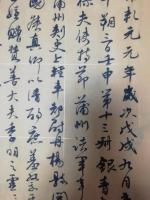 乾元元年歲次戊戌九月庚
朔三日壬申第十三叔銀青
祿夫使持節蒲州諸軍事
蒲州刺史上輕車都尉丹楊縣開
國侯真卿以清酌庶羞祭于
姪贈贊善大夫季明之靈